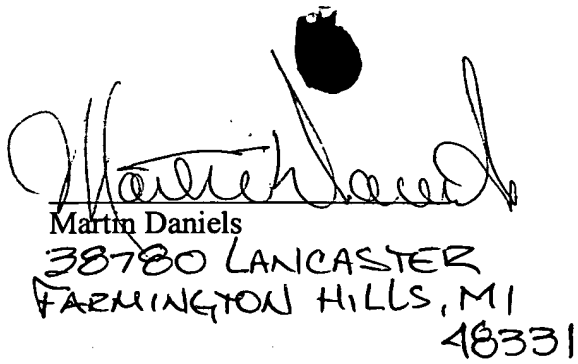 Martin Daniels
Martin Daniels
38780 LANCASTER
FARMINGTON HILLS, MI
48331